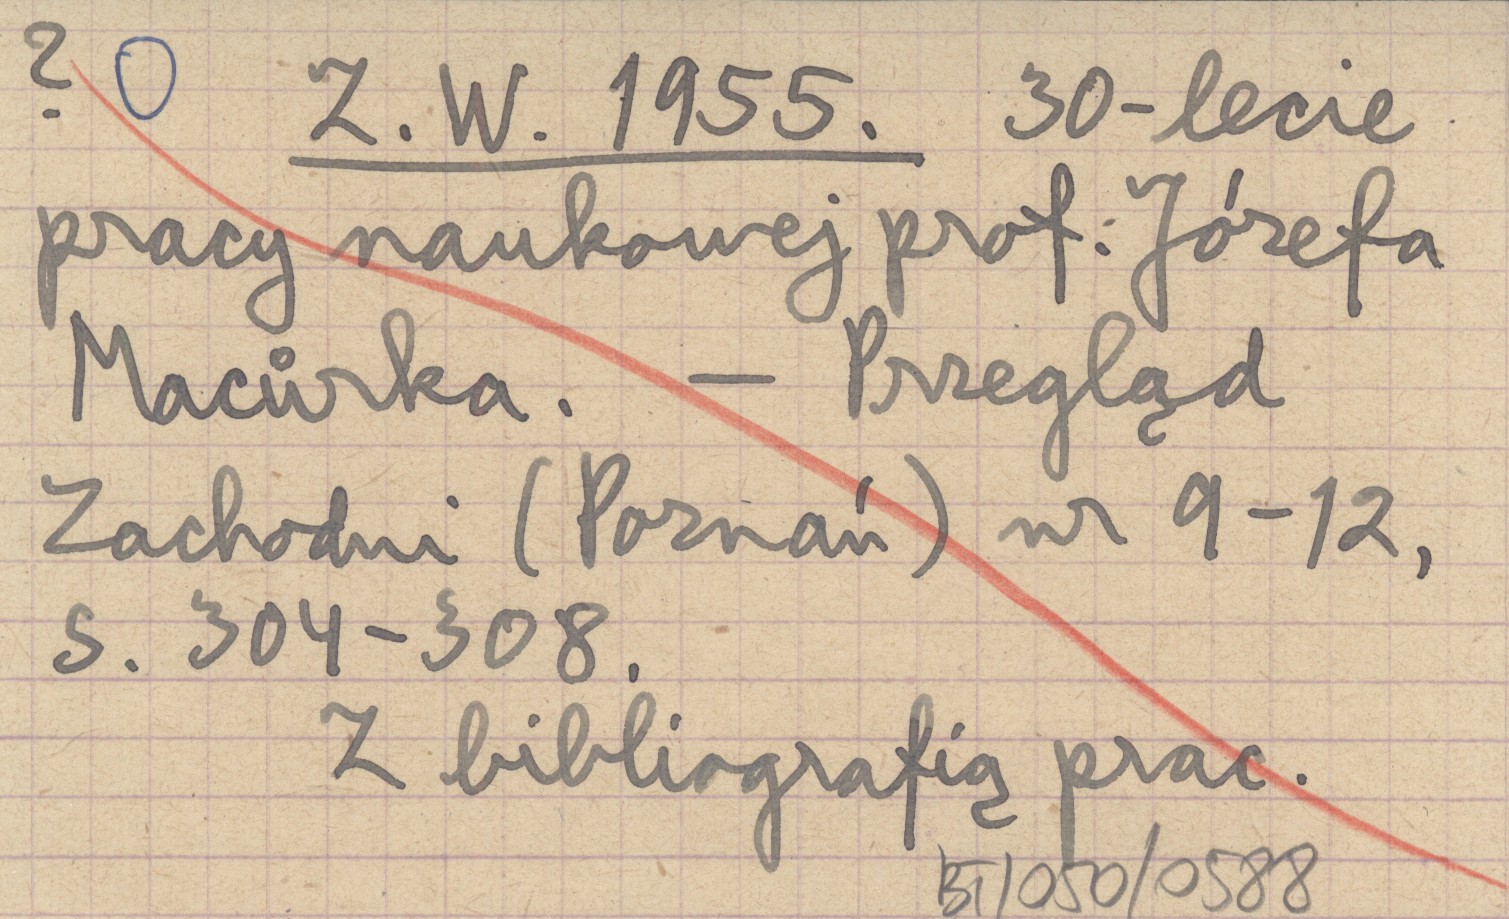 ? O Z. W. 1955. 30-lecie
pracy naukowej prof. Józefa
Macůrka. — Przegląd
Zachodni (Poznań) nr 9-12,
s. 304-308.
Z bibliografią prac.
BT/050/0588